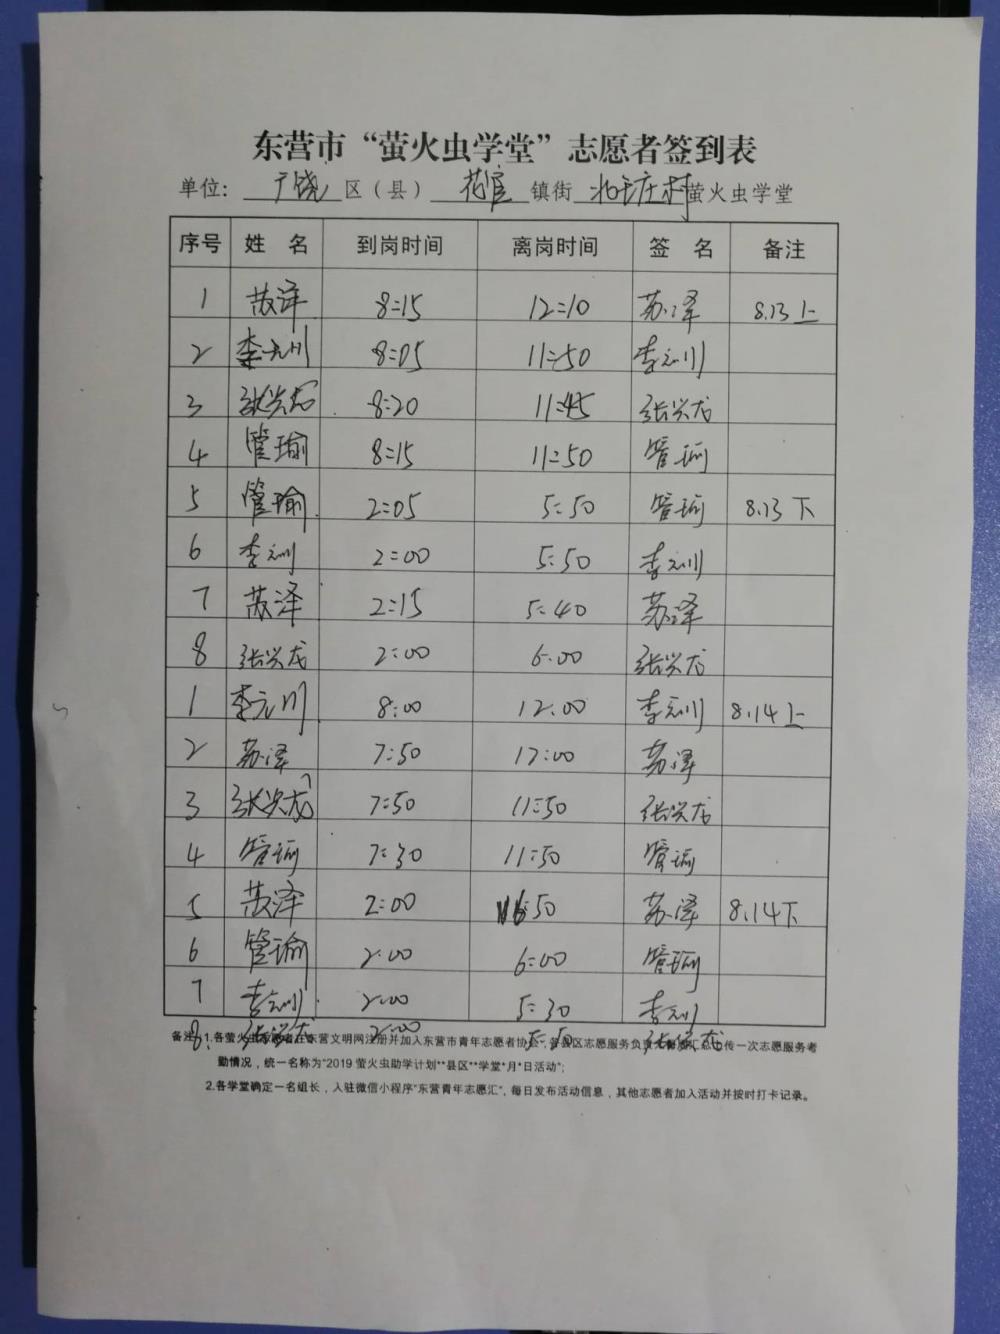 东营市“萤火虫学堂”志愿者签到表
单位: 广饶 区（县） 花官 镇街 北 庄村 萤火虫学堂
序号 姓 名 到岗时间 离岗时间 签 名 备注
1 苏泽 8:15 12:10 苏泽 8.13上
2 李元川 8:05 11:50 李元川
3 张兴龙 8:20 11:45 张兴龙
4 管瑜 8:15 11:50 管瑜
5 管瑜 2:05 5:50 管瑜 8.13下
6 李元川 2:00 5:50 李元川
7 苏泽 2:15 5:40 苏泽
8 张兴龙 2:00 6:00 张兴龙
1 李元川 8:00 12:00 李元川 8.14上
2 苏泽 7:50 12:00 苏泽
3 张兴龙 7:50 11:50 张兴龙
4 管瑜 7:30 11:50 管瑜
5 苏泽 2:00 :50 苏泽 8.14下
6 管瑜 2:00 6:00 管瑜
7 李元川 2:00 5:30 李元川
8. 张兴龙 2:00 5:50 张兴龙
备注:1.各萤火虫 者在东营文明网注册并加入东营市青年志愿者协会，各县区志愿服务负责 汇总上传一次志愿服务考
勤情况，统一名称为“2019 萤火虫助学计划**县区**学堂*月*日活动”;
2.各学堂确定一名组长，入驻微信小程序“东营青年志愿汇”，每日发布活动信息，其他志愿者加入活动并按时打卡记录。